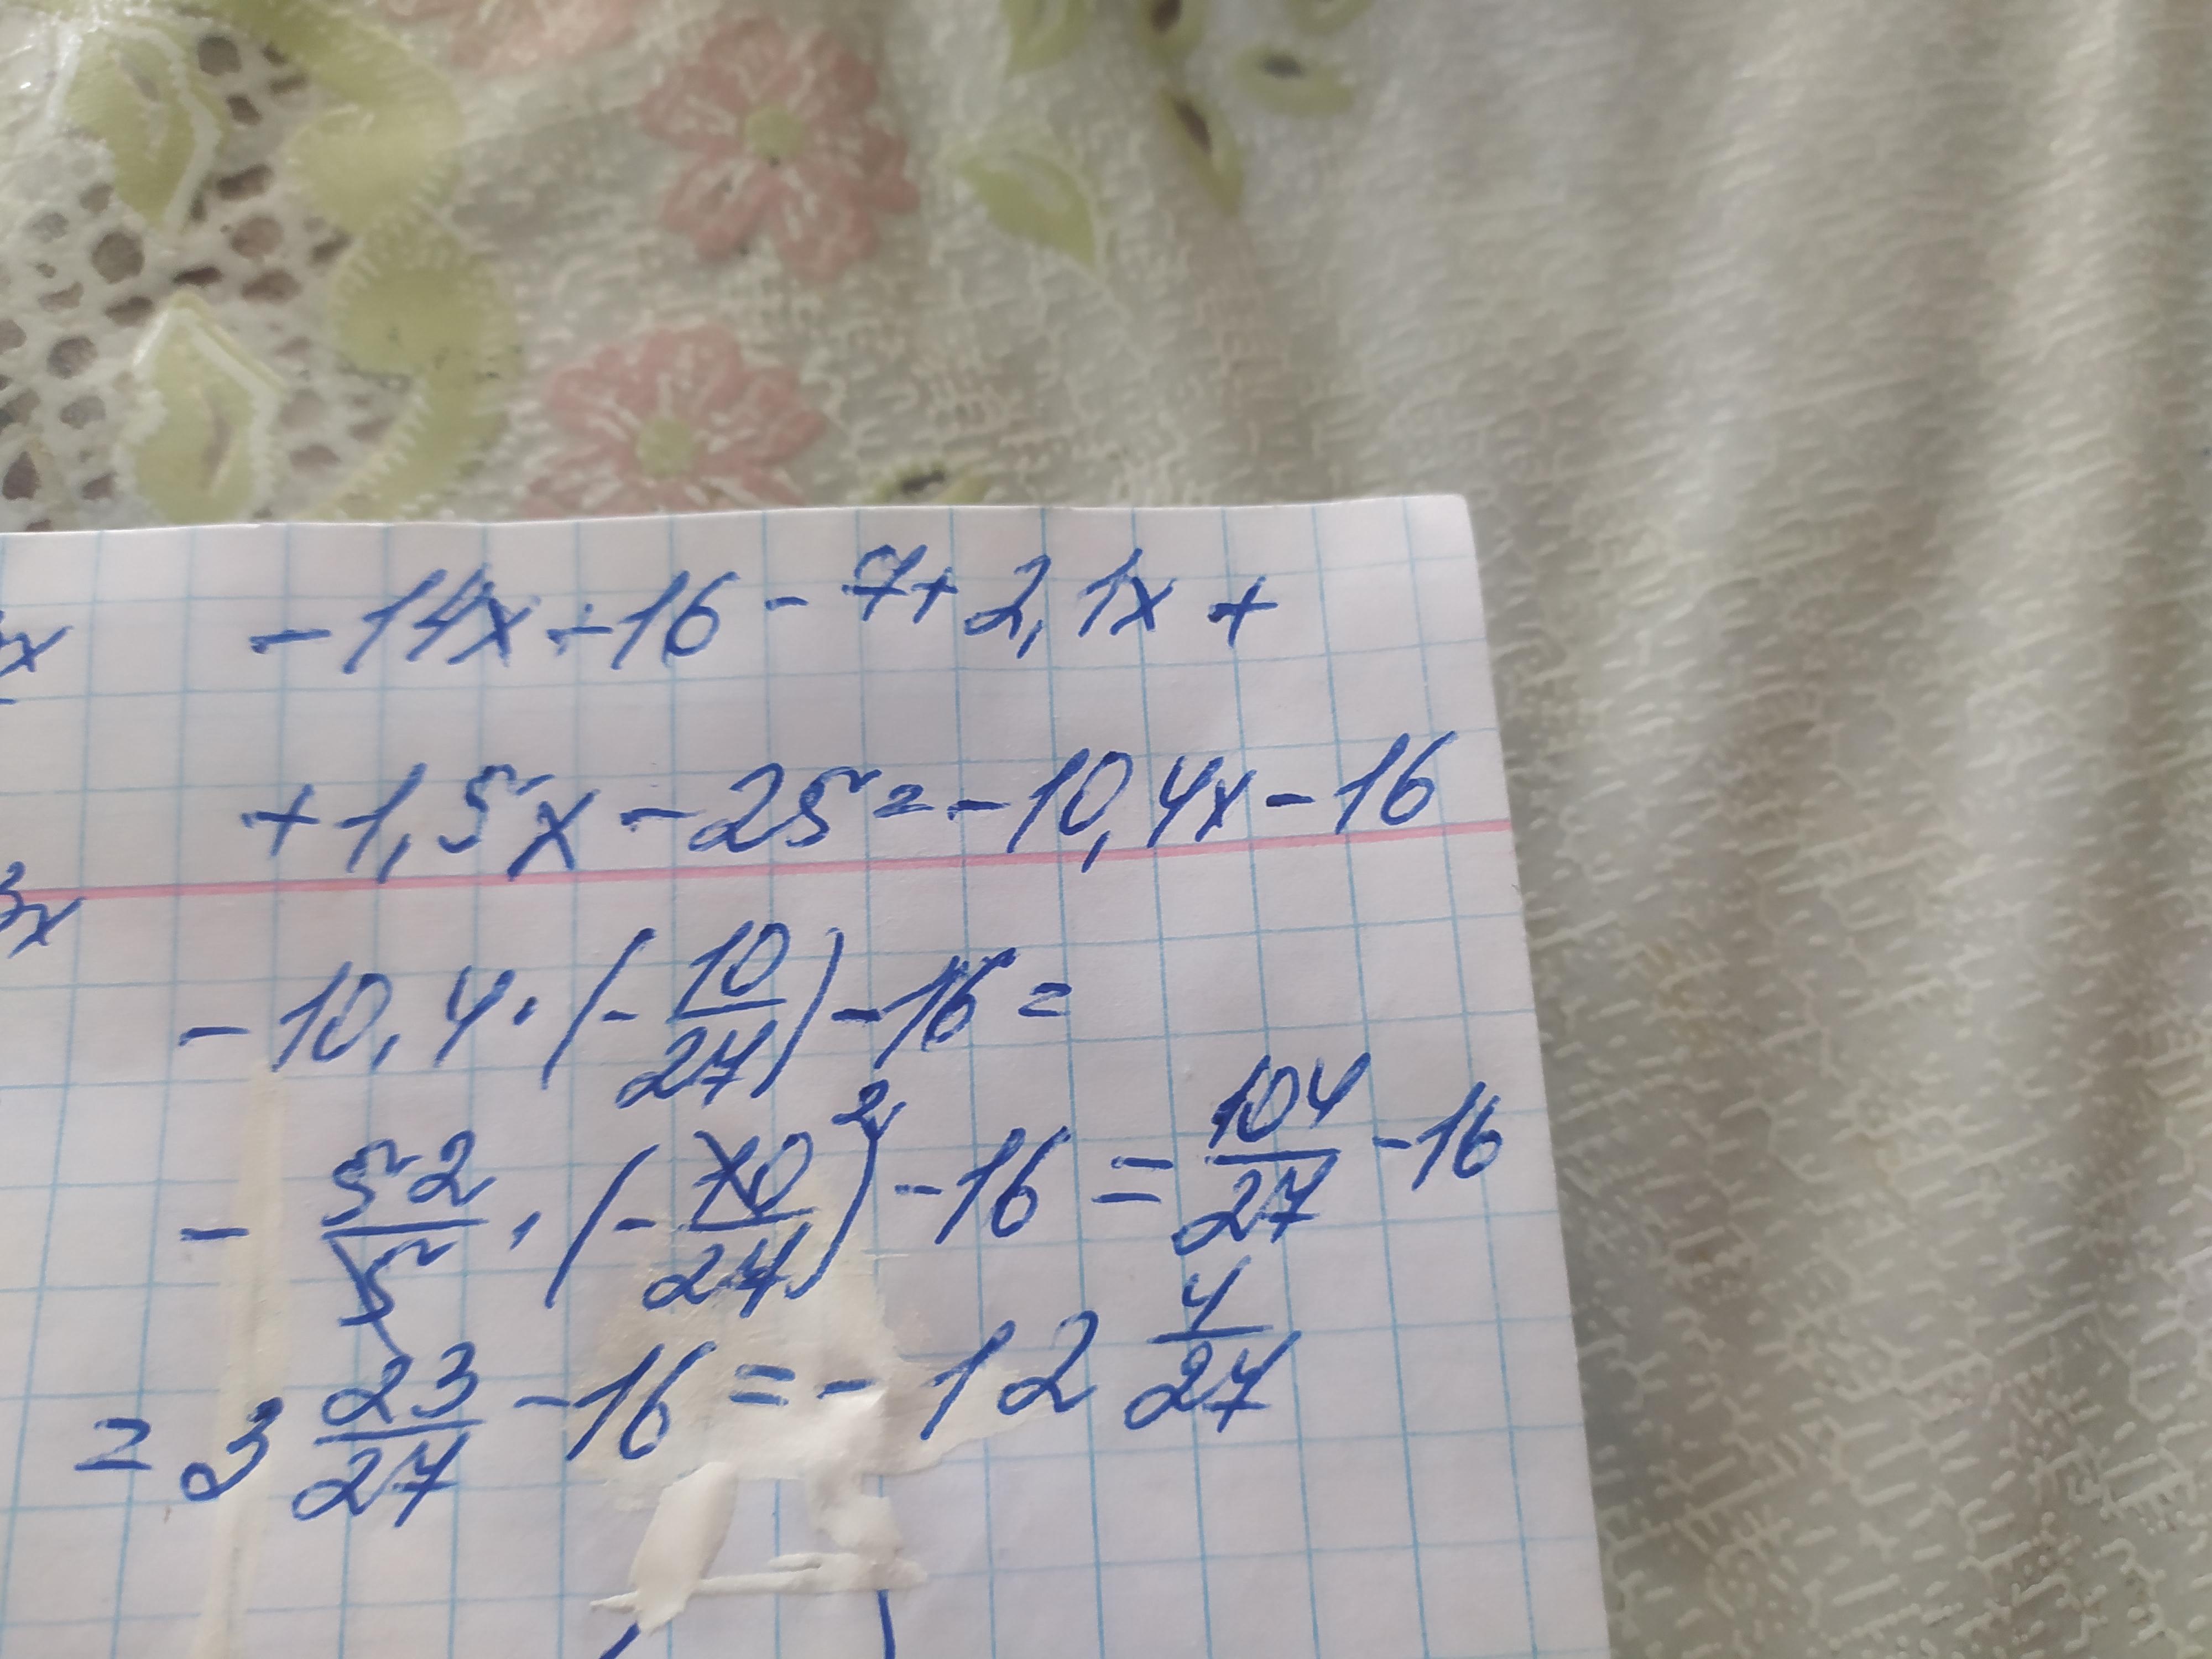 -14x+16-7+2,1x+
+1,5x-25=-10,4x-16
3x
-10,4·(-10/27)-16=
-52/5·(-10/27)²-16=104/27-16
=3 23/27-16=-12 4/27